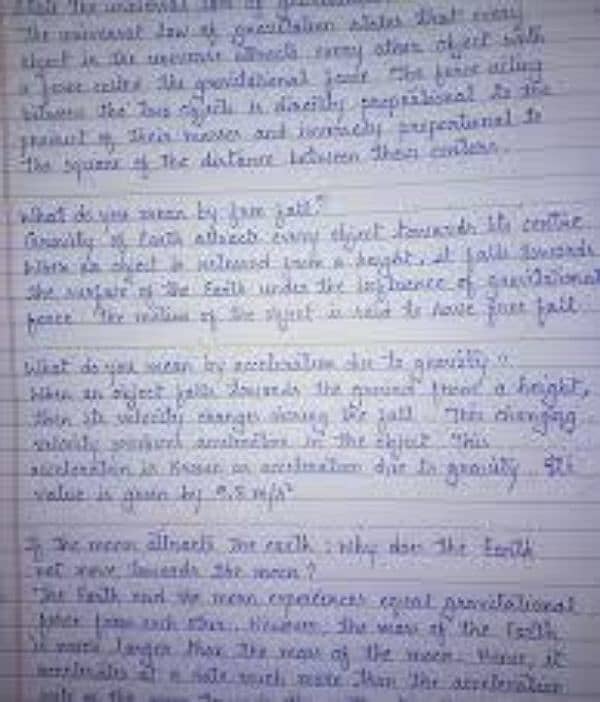 State the universal law of gravitation
The universal law of gravitation states that every
object in the universe attracts every other object with
a force called the gravitational force. The force acting
between the two objects is directly proportional to the
product of their masses and inversely proportional to
the square of the distance between their centers.
What do you mean by free fall?
Gravity of Earth attracts every object towards its centre.
When an object is released from a height, it falls towards
the surface of the Earth under the influence of gravitational
force. The motion of the object is said to have free fall.
What do you mean by acceleration due to gravity?
When an object falls towards the ground from a height,
then its velocity changes during the fall. This changing
velocity produces acceleration in the object. This
acceleration is known as acceleration due to gravity. Its
value is given by 9.8 m/s²
If the moon attracts the earth, why does the Earth
not move towards the moon?
The Earth and the moon experiences equal gravitational
force from each other. However, the mass of the Earth
is much larger than the mass of the moon. Hence, it
accelerates at a rate much more than the acceleration
rate of the